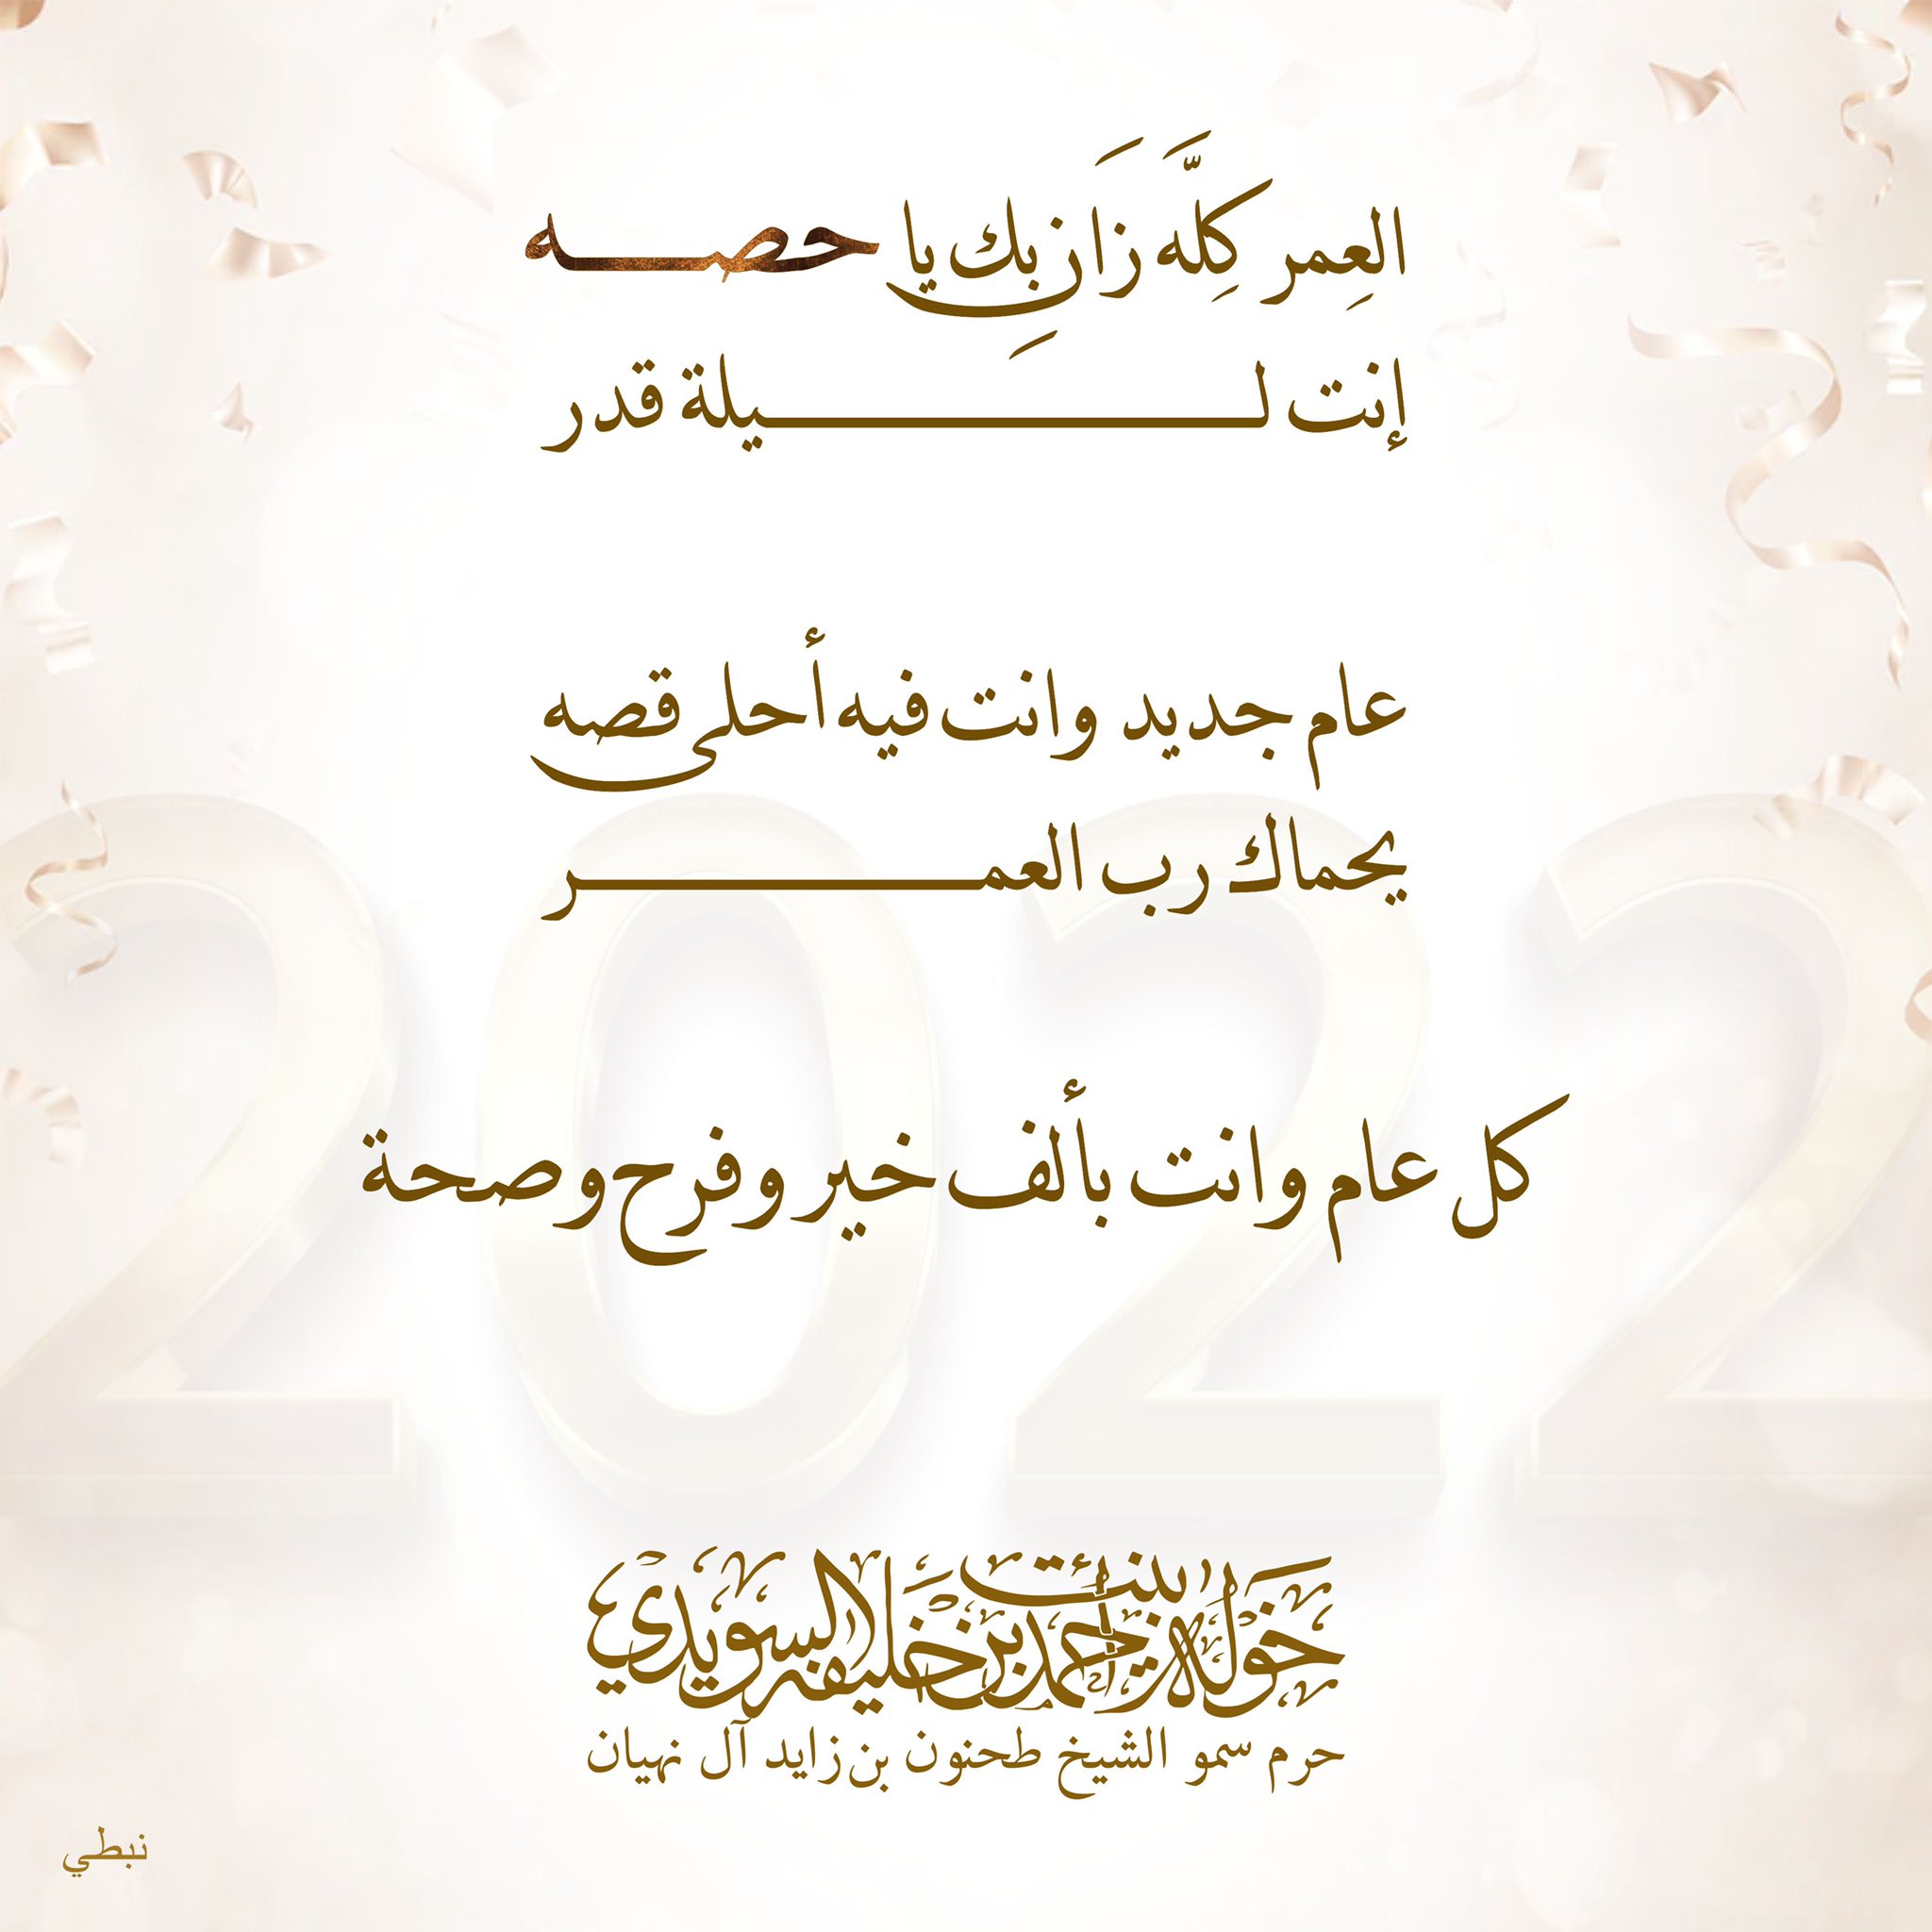 العِمر كِلَّه زَانِ بك يا حصـــه
إنت لــــــــــيلة قدر
عام جديد وانت فيه أحلى قصه
يحماك رب العمــــــــر
كل عام وانت بألف خير وفرح وصحة
2022
خوله بنت احمد بن خليفه السويدي
حرم سمو الشيخ طحنون بن زايد آل نهيان
نبطي